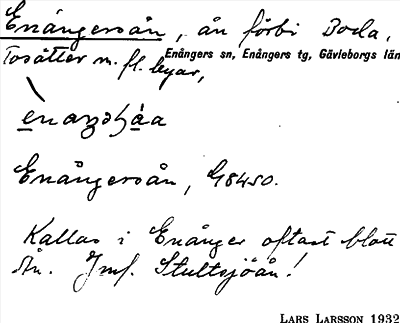 Enångersån, ån förbi Boda,
Tosätter m. fl. byar, Enångers sn, Enångers tg, Gävleborgs län
Enångersån, G8450.
Kallas i Enånger oftast blott
Ån. Jmf. Stultsjöån!
LARS LARSSON 1932